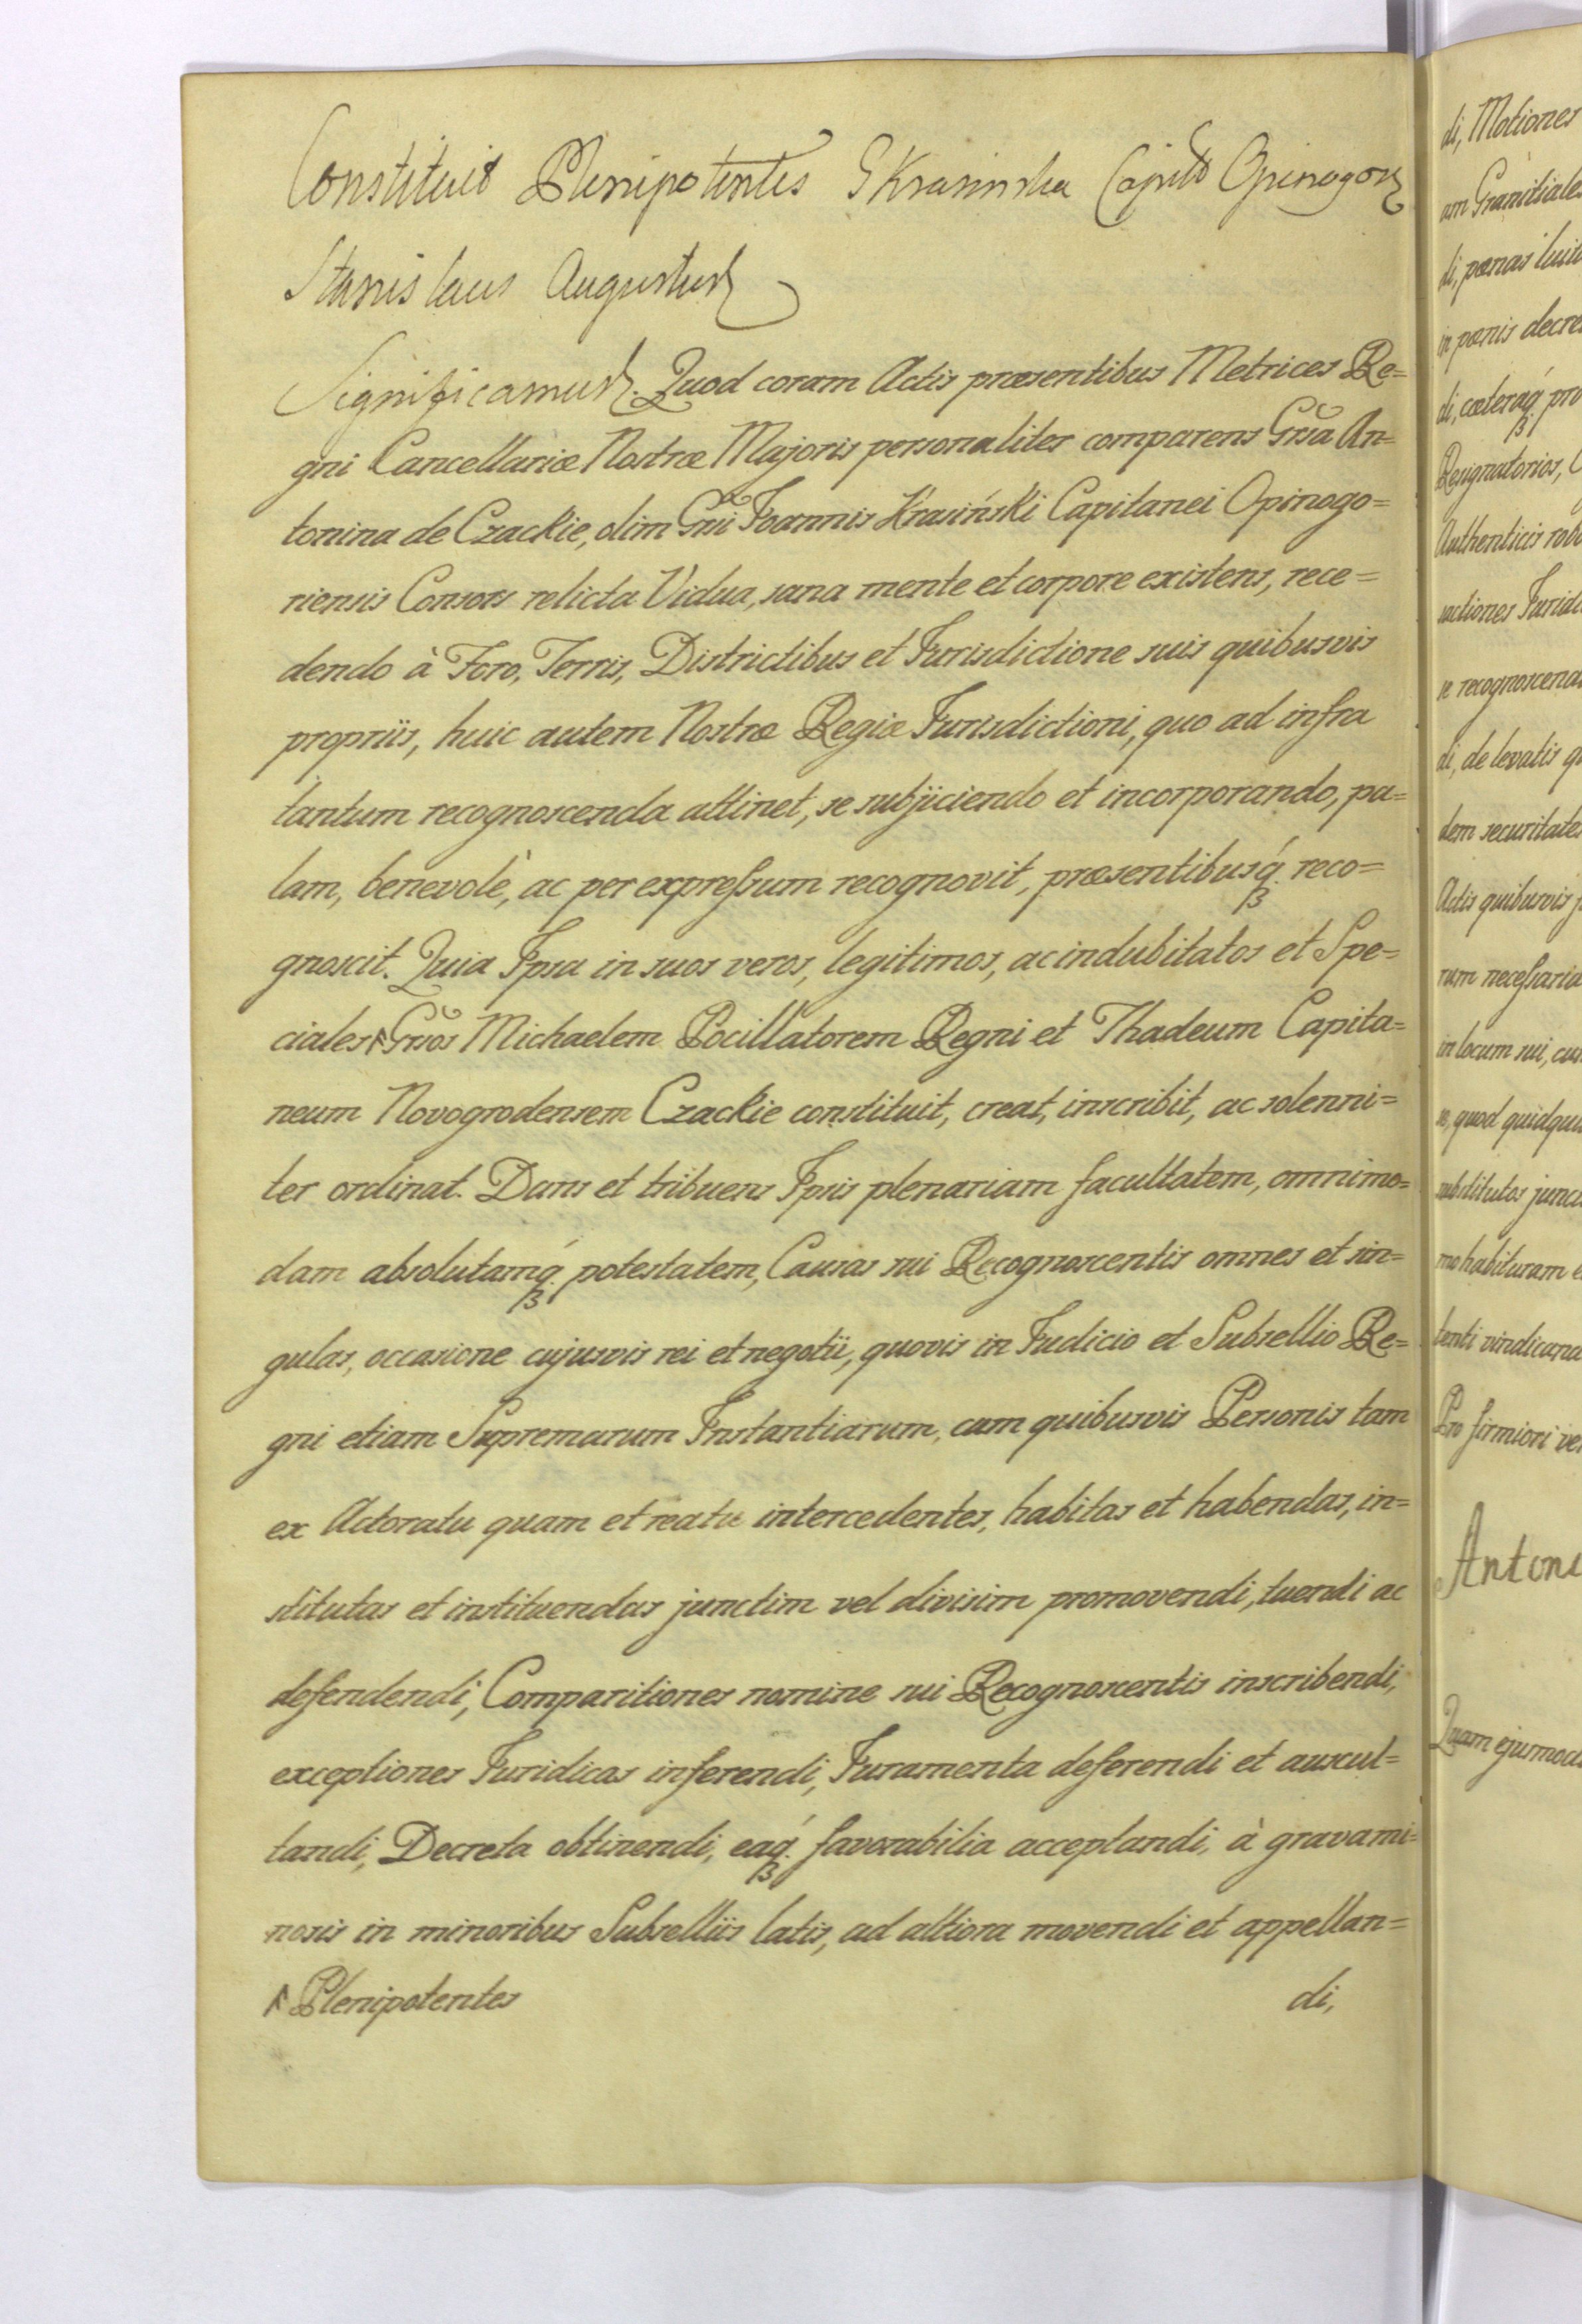 Constituit Plenipotentes G Krasinska Capit Opinogor
Stanislaus Augustus
Significamus. Quod coram Actis præsentibus Metrices Re=
gni Cancellariæ Nostræ Majoris personaliter comparens Grsa An=
tonina de Czackie, olim Grsi Joannis Krasiński Capitanei Opinogo=
riensis Consors relicta Vidua, sana mente et corpore existens, rece=
dendo à Foro, Terris, Districtibus et Jurisdictione suis quibusvis
propriis, huic autem Nostræ Regiæ Jurisdictioni, quo ad infra
tantum recognoscenda attinet, se subjiciendo et incorporando, pa=
lam, benevolè, ac per expreſsum recognovit, præsentibusq́. reco=
gnoscit. Quia Ipsa in suos veros, legitimos, ac indubitatos et Spe=
ciales Grsos Michaelem Pocillatorem Regni et Thadeum Capita=
neum Novogrodensem Czackie constituit, creat, inscribit, ac solenni=
ter ordinat. Dans et tribuens Ipsis plenariam facultatem, omnimo=
dam absolutamq́. potestatem, Causas sui Recognoscentis omnes et sin=
gulas, occasione cujusvis rei et negotii, quovis in Judicio et Subsellio Re=
gni etiam Supremarum Instantiarum, cum quibusvis Personis tam
ex Actoratu quam et reatu intercedentes, habitas et habendas, in=
stitutas et instituendas junctim vel divisim promovendi, tuendi ac
defendendi, Comparitiones nomine sui Recognoscentis inscribendi,
exceptiones Juridicas inferendi, Juramenta deferendi et auscul=
tandi, Decreta obtinendi, eaq́. favorabilia acceptandi, à gravami=
nosis in minoribus Subselliis latis, ad altiora movendi et appellan=
Plenipotentes di,
di, Motiones
am Granitiales
di, pœnas
in pœnis
di, cæteraq́. pro
Resignatorios,
Authenticis
se
di, de levatis
dem
Actis quibusvis
rum neceſsaria
in locum sui,
quod
substitutos
mo habituram
tenti
Pro firmiori
Antoni
Quam